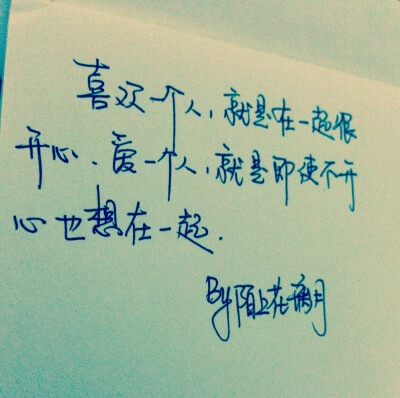 喜欢一个人，就是在一起很
开心、爱一个人，就是即使不开
心也想在一起.
By陌上在